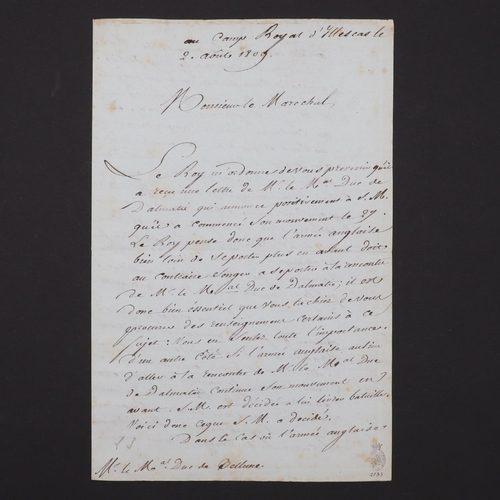 au Camp Royal d'Illescas le
2. août 1809.
Monsieur le Maréchal,
Le Roy m'ordonne de vous prévenir qu'il
a reçu une lettre de Mr. le Mal Duc de
Dalmatie qui annonce positivement à S.M.
qu'il a commencé son mouvement le 27.
Le Roy pense donc que l'armée anglaise
bien loin de se porter plus en avant doit
au contraire songer à se porter à la rencontre
de Mr. le Mal Duc de Dalmatie; il est
donc bien essentiel que vous tachiez de vous
procurer des renseignements certains à ce
sujet: Vous en sentez toute l'importance.
D'un autre côté si l'armée anglaise, au lieu
d'aller à la rencontre de Mr. le Mal Duc
de Dalmatie continue son mouvement en
avant, S.M. est décidée à lui livrer bataille.
Voici donc ce que S.M. a décidé.
Dans le cas où l'armée anglaise
Mr. le Mal Duc de Bellune.